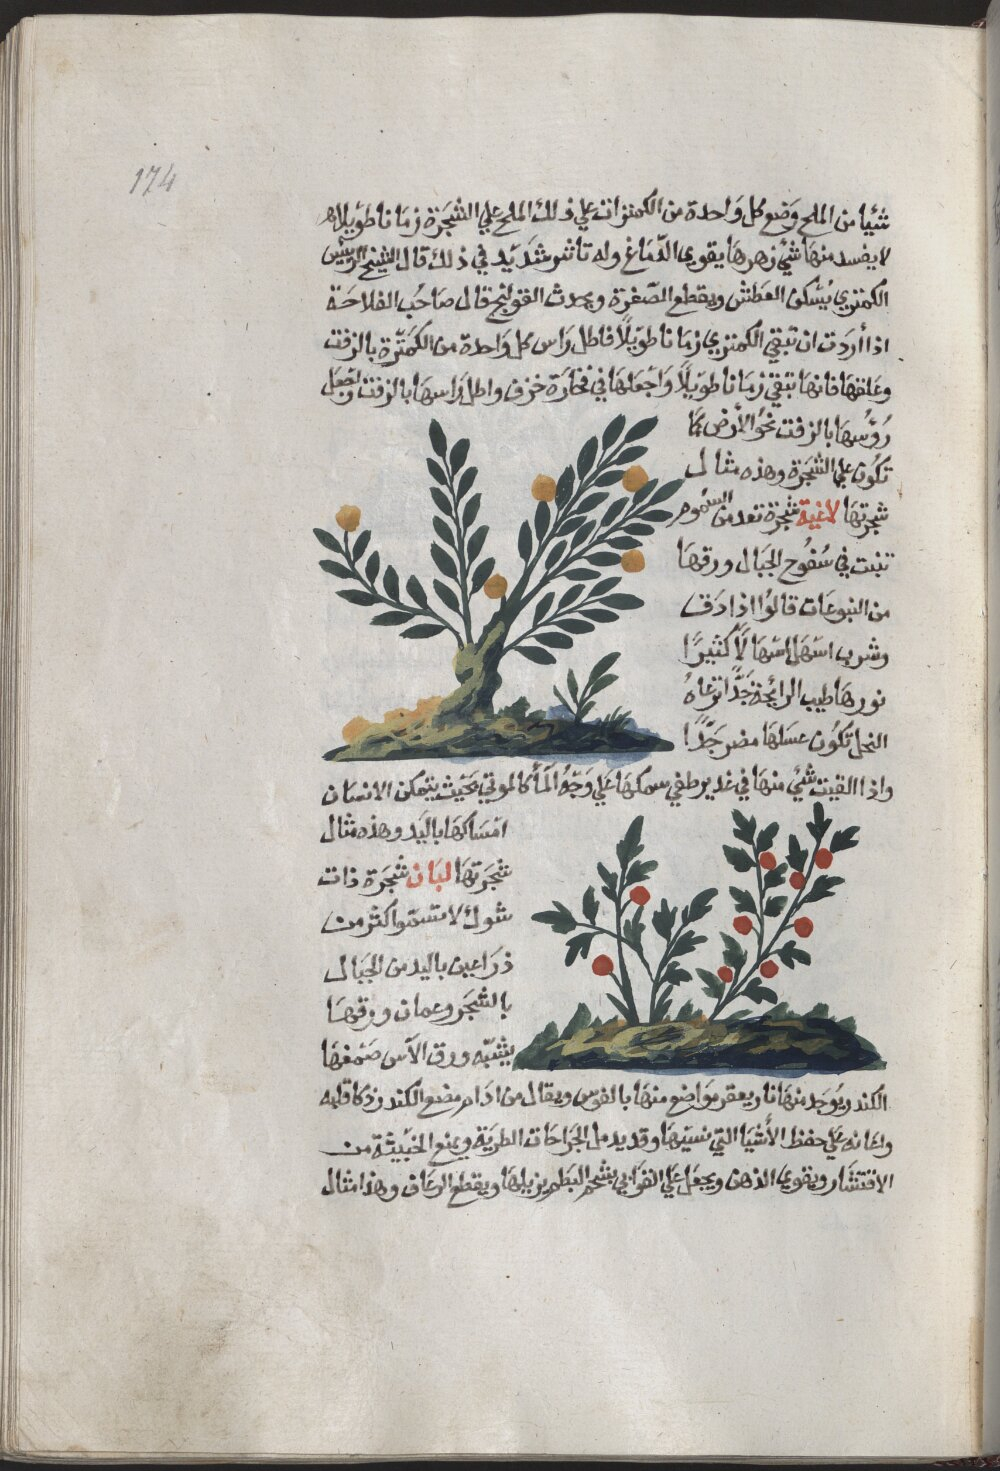 174
شيًا من الملح وَضع كل وَاحدة من الكمثرات علي ذلك الملح علي الشجَرة زمَانا طوَيلا
لا يفسد منهَا شَيٌ زهرهَا يقوي الدّمَاغ وله تاثير شدَيد في ذلك قال الشيخ الرئيس
الكمثري يُسّكن العَطش ويقطع الصّفرة ويحدث القولنج قال صَاحبُ الفلاحَة
اذا أردَت ان تبقي الكمثري زمَانا طوَيلاً فاطل رَاس كل وَاحدة من الكمَثّرة بالزفت
وعَلقهَا فانهَا تبقي زمَانا طوَيلاً وَاجعَلهَا في فخارَة خزف واطل رَاسهَا بالزفت واجعَل
رُؤسهَا بالزفت نحوُ الأرض كمَا
تكوُن علي الشجَرة وهذه مثال
شجرتهَا لاغية شجَرَة تعد من السمُوم
تنبت في سُفوُح الجبَال ورقهَا
من اليتوعَات قالوُا اذا دَق
وشرب اسَهَل اسَهَا لاً كثيرًا
نورهَا طيب الرائحَة جَدًّا ترعَاهُ
النحل تكوُن عسَلهَا مضر جَدًّا
واذا القيت شَيٌ منهَا في غدير طفي سمكهَا علي وَجّهُ المَأ كالموتي بحَيث يتمكن الانسَان
امسَاكهَا باليَد وهذه مثال
شجَرتهَا لبَان شجَرة ذات
شوك لا تسموا اكثر من
ذرَاعين باليد من الجبَال
بالشجَر وعمان وَرقهَا
يشبّه ورق الآس صَمغهَا
الكندر يوُجَد منهَا نار يعقر موَاضع منهَا بالفوس ويقال من ادَام مضغ الكندر ذكا قلبه
واعَانه علي حفظ الأشيَا التي نسيهَا وقد يدمل الجَرَاحَات الطريَة ويمنع الخبيثة من
الانتشَار ويقوي الذهن ويجعَل علي القوَابي بشحم البَط يزيلهَا ويقطع الرعَاف وهذا مثال